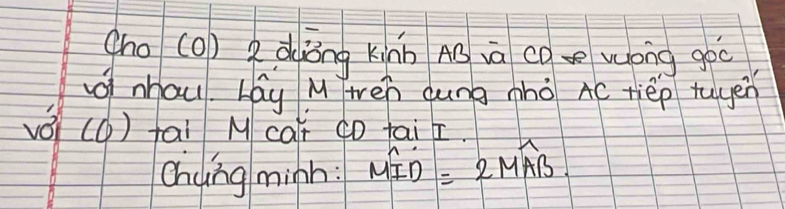 Cho (O) 2 đường kính AB và CD vuông góc
với nhau. Lấy M trên cung nhỏ AC tiếp tuyến
với (O) tại M cắt CD tại I.
Chứng minh: MID = 2MAB.